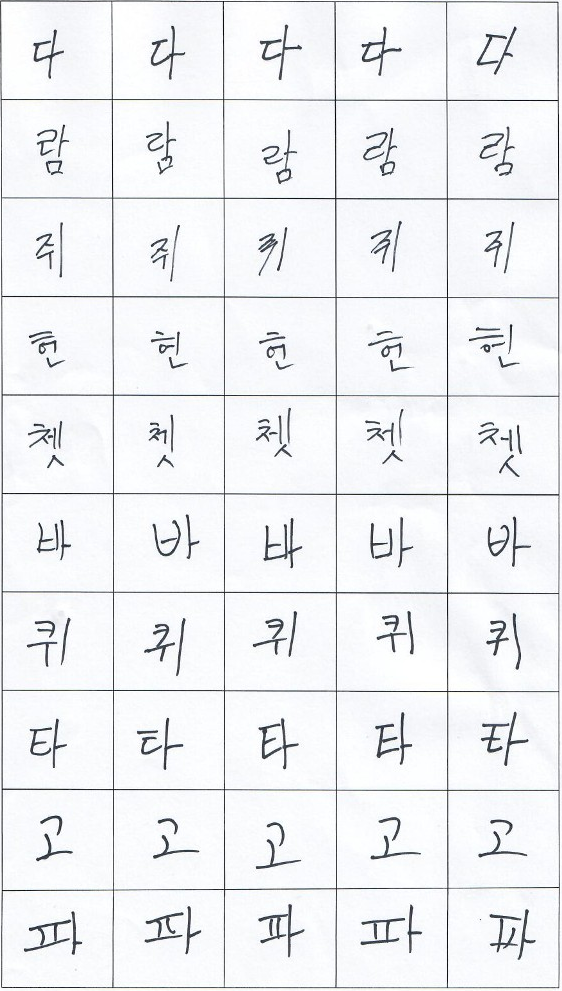 다 다 다 다 다
람 람 람 람 람
쥐 쥐 쥐 쥐 쥐
헌 헌 헌 헌 헌
쳇 쳇 쳇 쳇 쳇
바 바 바 바 바
퀴 퀴 퀴 퀴 퀴
타 타 타 타 타
고 고 고 고 고
파 파 파 파 파